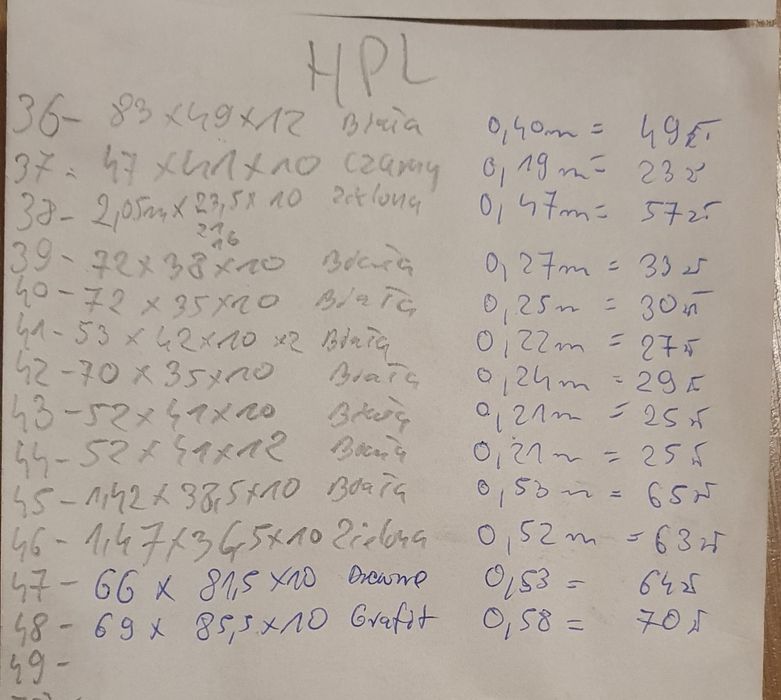 HPL
36- 83 x 49 x 12 Biała 0,40m = 49zł
37- 47 x 41 x 10 Czarny 0,19m = 23zł
38- 2,05m x 23,5 x 10 Zielona 0,47m = 57zł
21 16
39- 72 x 38 x 10 Biała 0,27m = 33zł
40- 72 x 35 x 10 Biała 0,25m = 30zł
41- 53 x 42 x 10 x2 Biała 0,22m = 27zł
42- 70 x 35 x 10 Biała 0,24m = 29zł
43- 52 x 41 x 10 Biała 0,21m = 25zł
44- 52 x 41 x 12 Biała 0,21m = 25zł
45- 1,42 x 38,5 x 10 Biała 0,53m = 65zł
46- 1,47 x 36,5 x 10 Zielona 0,52m = 63zł
47- 66 x 81,5 x 10 0,53 = 64zł
48- 69 x 85,5 x 10 Grafit 0,58 = 70zł
49-